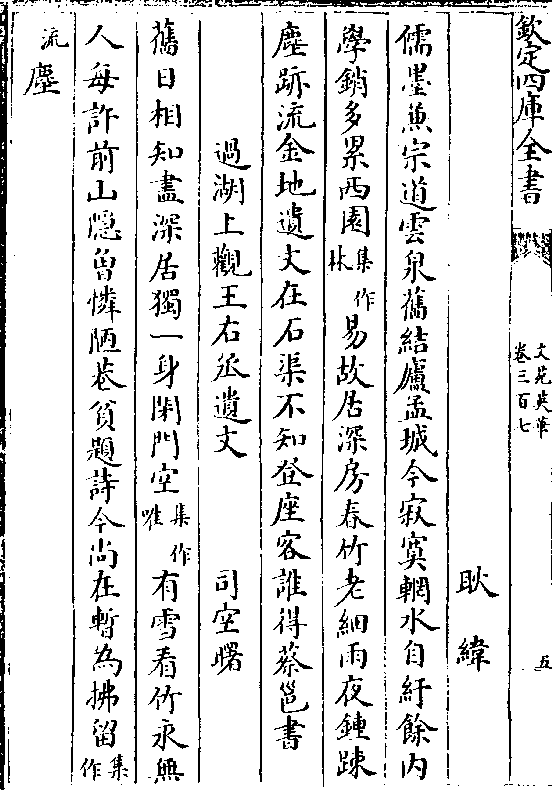 欽定四庫全書
文苑英華
卷三百七
五
耿緯
儒墨兼宗道雲泉舊結廬孟城今寂寞輞水自紆餘內
學銷多累西園集作林易故居深房春竹老細雨夜鍾踈
塵跡流金地遺文在石渠不知登座客誰得蔡邕書
過湖上觀王右丞遺文 司空曙
舊日相知盡深居獨一身閉門空集作唯有雪看竹永無
人每許前山隱曾憐陋巷貧題詩今尚在暫為拂留集作
流塵